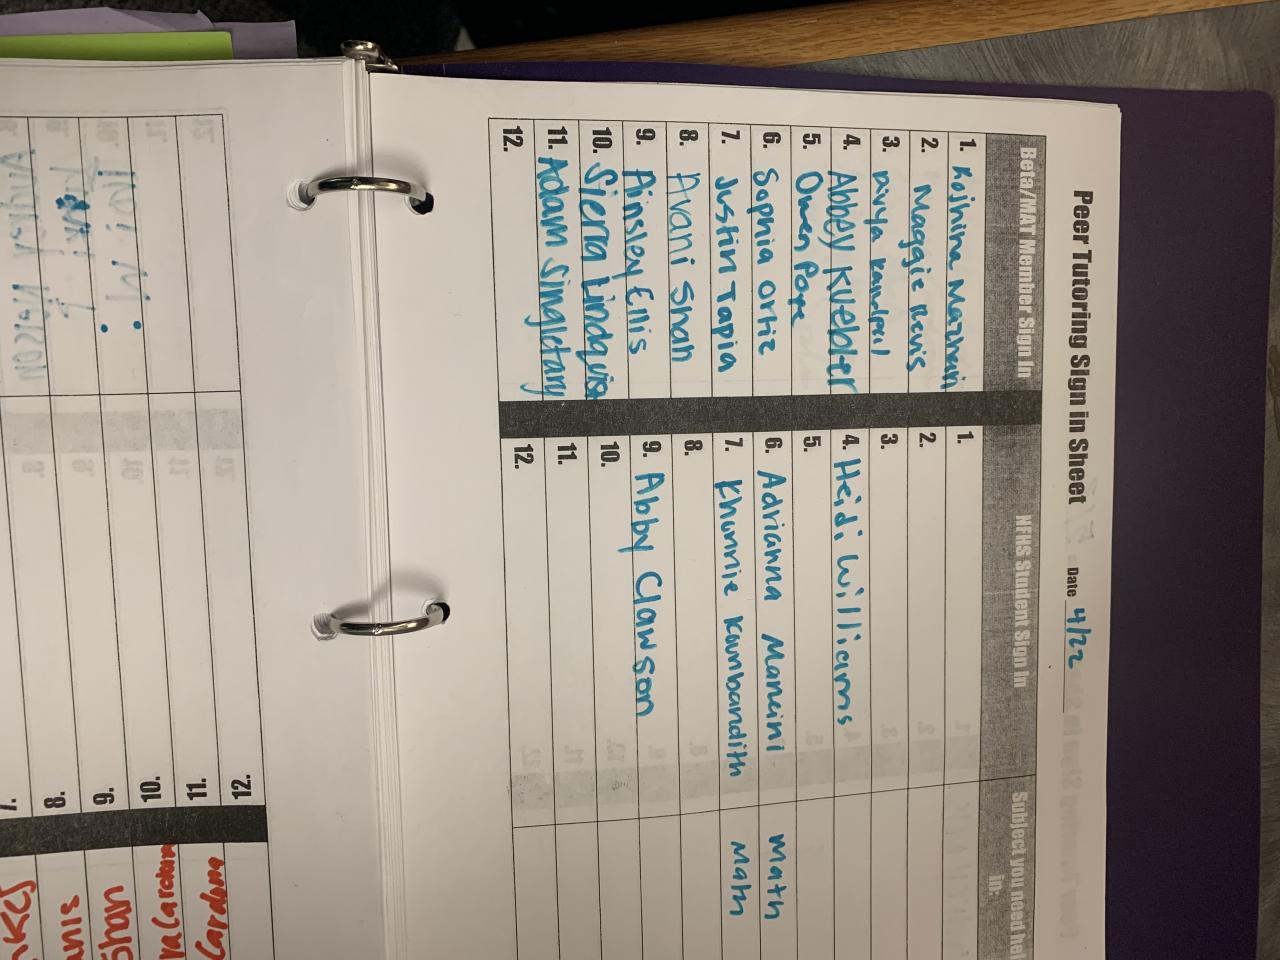 Peer Tutoring Sign in Sheet Date 4/22
Beta/MAT Member Sign In NFHS Student Sign In Subject you need hel
in:
1. Roshina Mazhari 1.
2. Maggie Revis 2.
3. Divya Kandpal 3.
4. Abbey Kuebler 4. Heidi Williams
5. Owen Pope 5.
6. Sophia Ortiz 6. Adrianna Mancini math
7. Justin Tapia 7. Khunnie Kounbandith math
8. Avani Shah 8.
9. Ainsley Ellis 9. Abby Clawson
10. Sierra Lindquist 10.
11. Adam Singletary 11.
12. 12.
7.
8. anis
9. Shan
10. ra Cardam
11. Cardam
12.